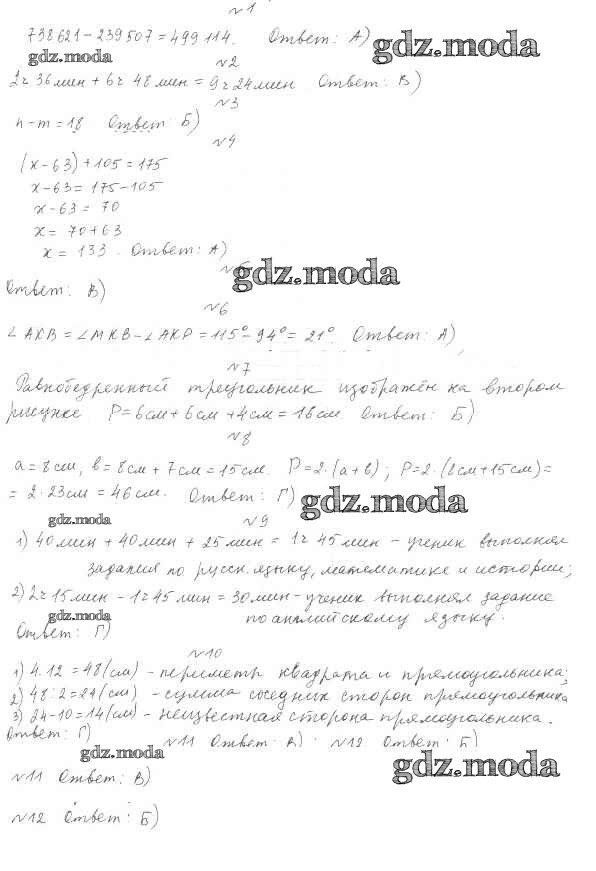 №1
738621 - 239507 = 499114. Ответ: А) gdz.moda
gdz.moda №2
2ч 36мин + 6ч 48мин = 9ч 24мин Ответ: В)
№3
n - m = 18 Ответ: Б)
№4
(x - 63) + 105 = 175
x - 63 = 175 - 105
x - 63 = 70
x = 70 + 63
x = 133. Ответ: А)
№5 gdz.moda
Ответ: В)
№6
∠AKB = ∠MKB - ∠AKP = 115° - 94° = 21°. Ответ: А)
№7
Равнобедренный треугольник изображён на втором
рисунке. P = 6см + 6см + 4см = 16см. Ответ: Б)
№8
a = 8см, b = 8см + 7см = 15см. P = 2·(a + b); P = 2·(8см + 15см) =
= 2·23см = 46см. Ответ: Г) gdz.moda
gdz.moda №9
1) 40мин + 40мин + 25мин = 1ч 45мин - ученик выполнял
задания по русск. языку, математике и истории;
2) 2ч 15мин - 1ч 45мин = 30мин - ученик выполнял задание
gdz.moda по английскому языку.
Ответ: Г)
№10
1) 4·12 = 48(см) - периметр квадрата и прямоугольника;
2) 48:2 = 24(см) - сумма соседних сторон прямоугольника
3) 24 - 10 = 14(см) - неизвестная сторона прямоугольника.
Ответ: Г)
№11 Ответ: В) №12 Ответ: Б)
gdz.moda gdz.moda
№11 Ответ: В)
№12 Ответ: Б)